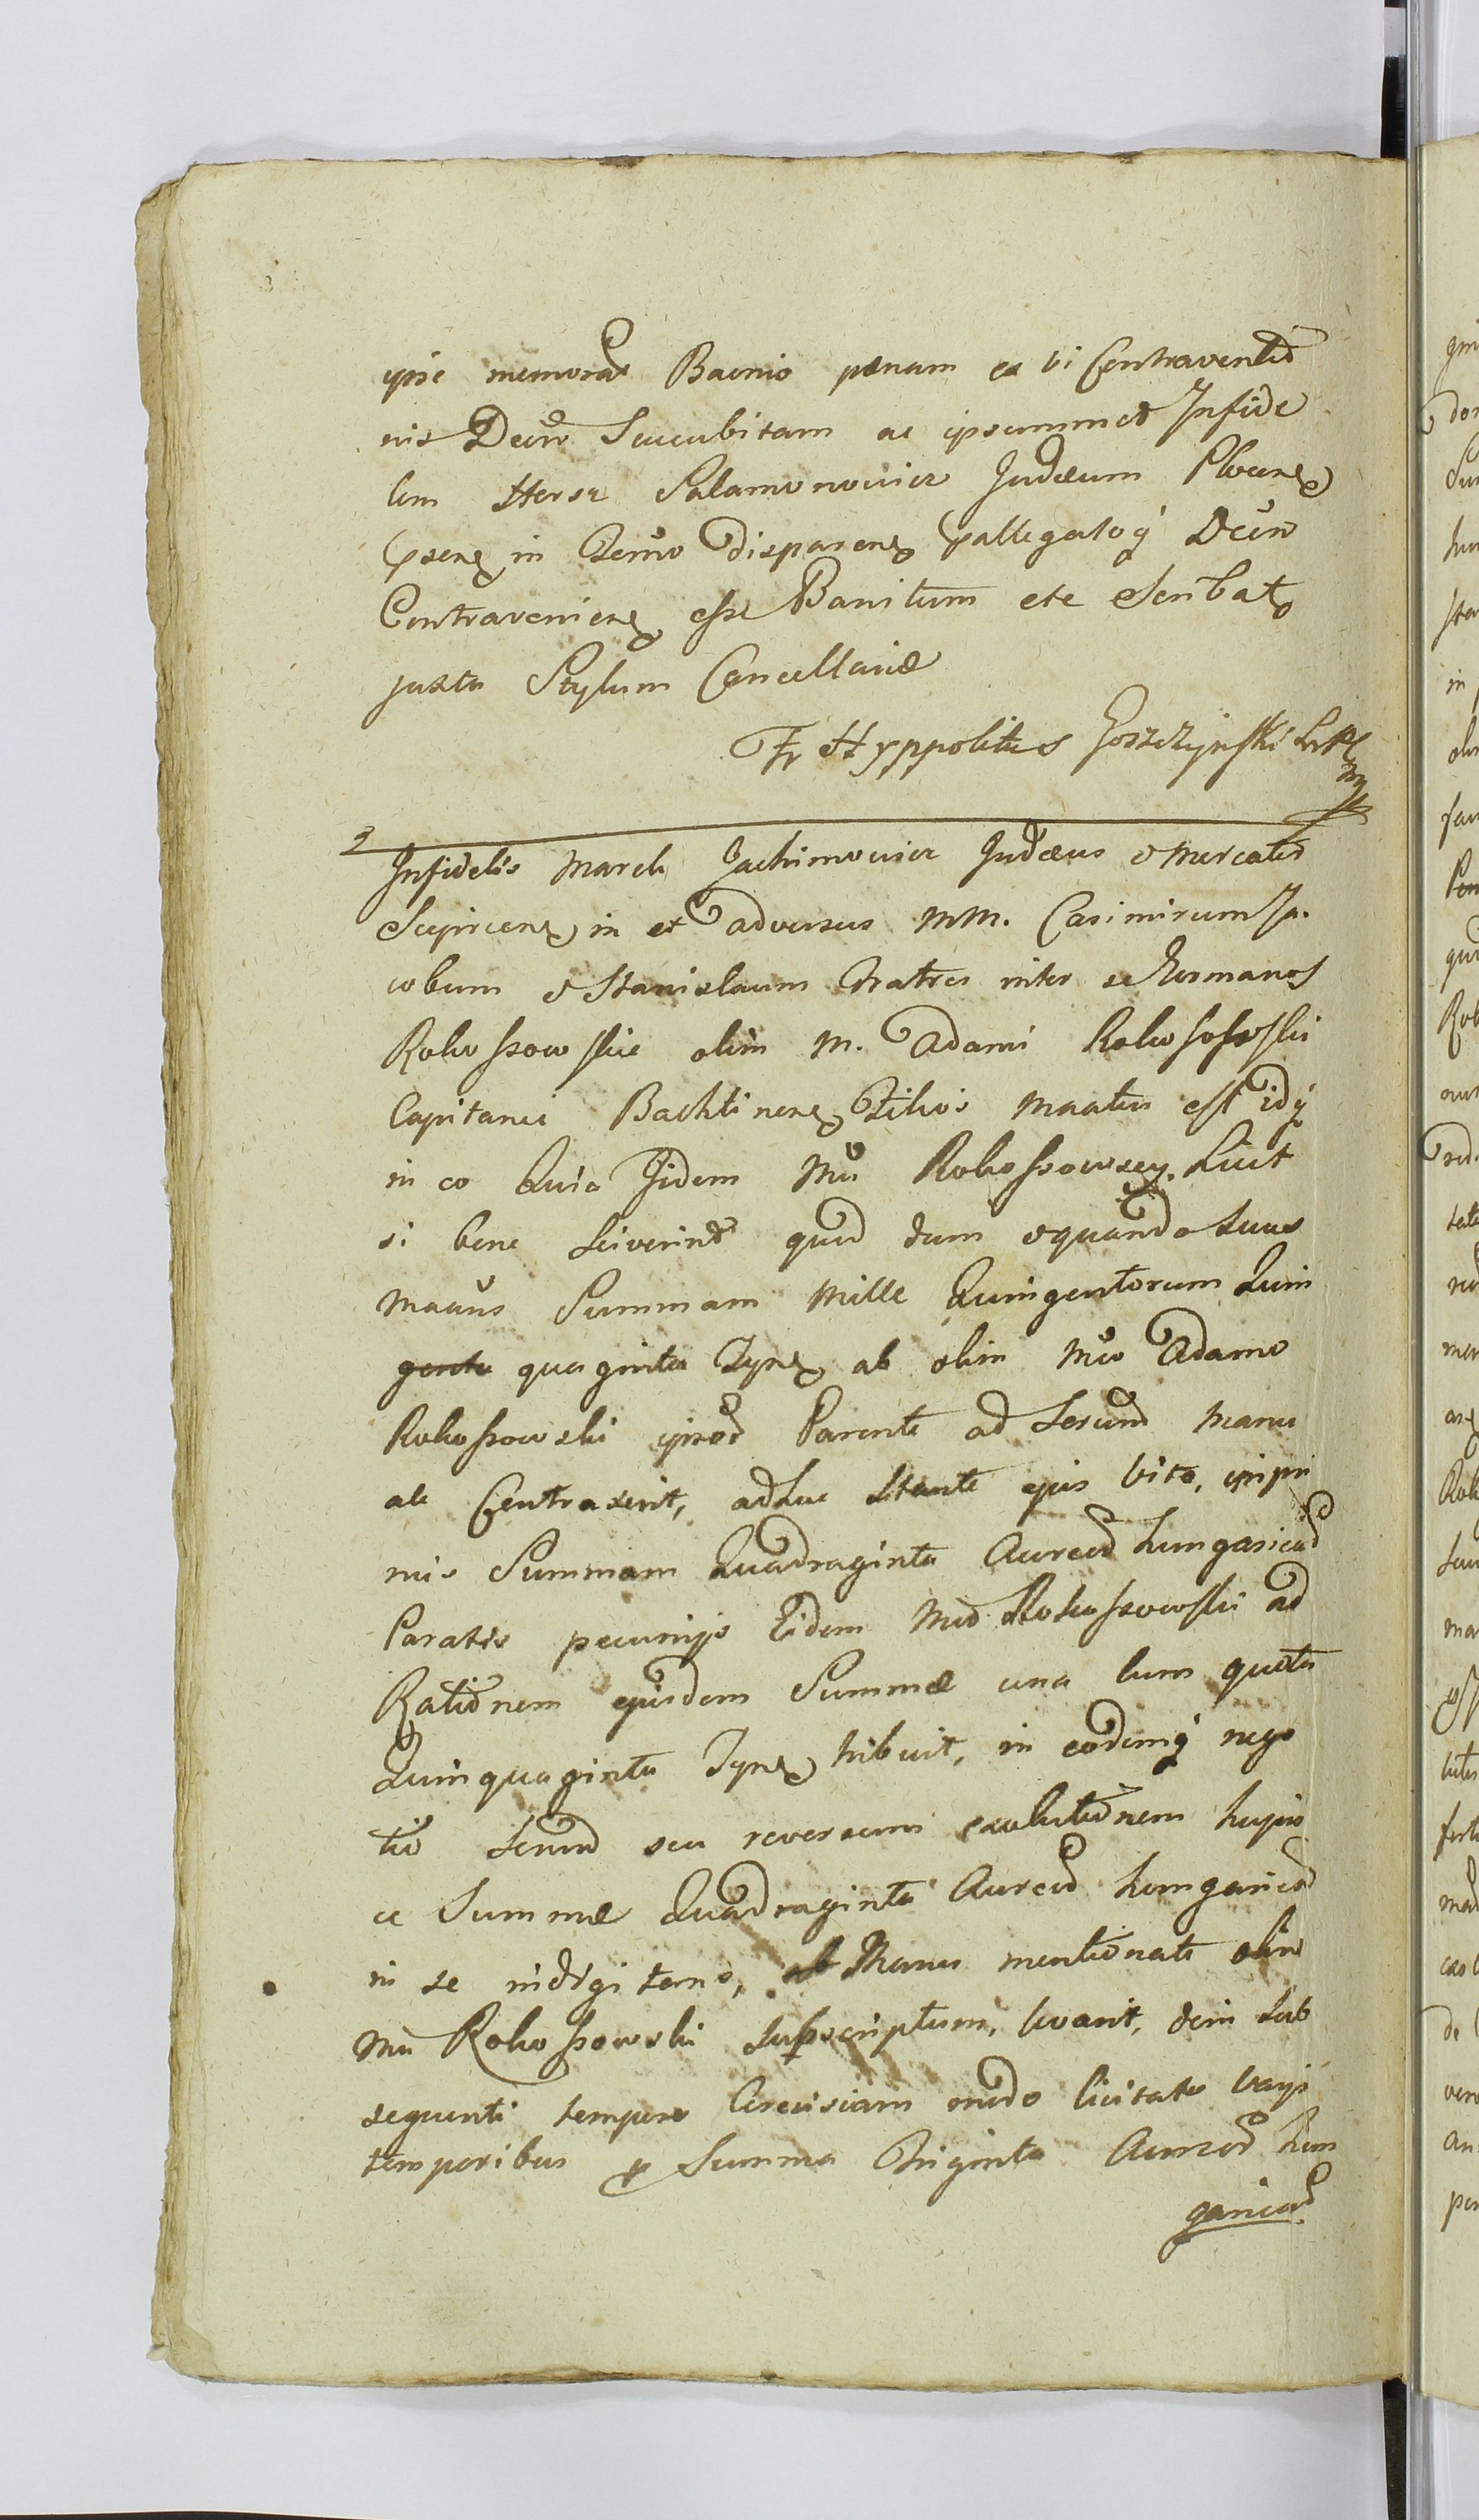 ipse memorat Bannio pænam ex vi Contraventio
nis Decŕo Succubitam ac ipsummet Infide
lem Hersz Salamonowicz Judæum Plocens
in Termo disparens Decro
Contraveniens esse Banitum etc Scribat
juxta Stylum Cancellariæ
Fr Hyppolitus Goszczynski
2
Infidelis March Jachimowicz Judæus & Mercator
Sepircens in et adversus MM. Casimirum Ja.
cobum & Stanislaum Fratres inter se Germanos
Rokossowskie olim M. Adami Rokossowski
Capitanei Bachtinens Filios Mactus est idq
in eo Quia Iidem Mci Rokossowscy. Licet
si bene sciverint quod dum & quando suus
Maāus Summam Mille Quingentorum Quin
genta quaginta Tyns ab olim Mco Adamo
Rokossowski ipsod Parente ad Scrund Manu
ale Contraxerit, adhuc Stante ejus Vita, inpri
mis Summam Quadraginta Aureod hungaricod
Paratis pecunijs Eidem Mco Rokossowski ad
Rationem ejusdem Summæ una Cum quota
Quinquaginta Tyns tribuit, in eodemq nego
tio Scrund seu reversum exolutionem hujus
ce Summæ Quadraginta Aureod hungaricod
in se indigitans, ab Manu mentionate olim
Mci Rokossowski Subscriptum, levavit, dein sub
sequenti tempore Cerevisiam modo licitato varijs
temporibus p Summa Triginta Aureod hun
garicod